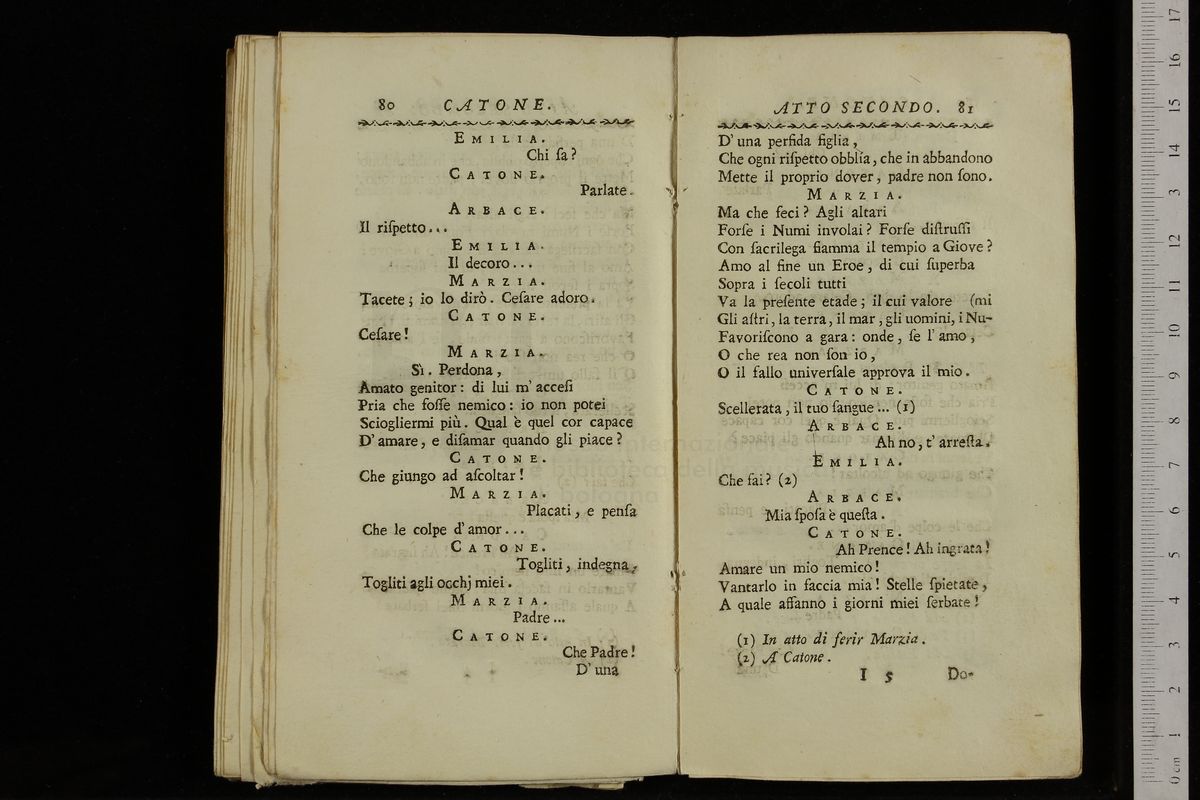 80 CATONE.
EMILIA.
Chi ſa?
CATONE.
Parlate.
ARBACE.
Il riſpetto...
EMILIA.
Il decoro...
MARZIA.
Tacete; io lo dirò. Ceſare adoro.
CATONE.
Ceſare!
MARZIA.
Sì. Perdona,
Amato genitor: di lui m' acceſi
Pria che foſſe nemico: io non potei
Sciogliermi più. Qual è quel cor capace
D' amare, e diſamar quando gli piace?
CATONE.
Che giungo ad aſcoltar!
MARZIA.
Placati, e penſa
Che le colpe d' amor...
CATONE.
Togliti, indegna,
Togliti agli occhj miei.
MARZIA.
Padre...
CATONE.
Che Padre!
D' una
ATTO SECONDO. 81
D' una perfida figlia,
Che ogni riſpetto obblìa, che in abbandono
Mette il proprio dover, padre non ſono.
MARZIA.
Ma che feci? Agli altari
Forſe i Numi involai? Forſe diſtruſſi
Con ſacrilega fiamma il tempio a Giove?
Amo al fine un Eroe, di cui ſuperba
Sopra i ſecoli tutti
Va la preſente etade; il cui valore (mi
Gli aſtri, la terra, il mar, gli uomini, i Nu-
Favoriſcono a gara: onde, ſe l' amo,
O che rea non ſon io,
O il fallo univerſale approva il mio.
CATONE.
Scellerata, il tuo ſangue... (1)
ARBACE.
Ah no, t' arreſta.
EMILIA.
Che fai? (2)
ARBACE.
Mia ſpoſa è queſta.
CATONE.
Ah Prence! Ah ingrata!
Amare un mio nemico!
Vantarlo in faccia mia! Stelle ſpietate,
A quale affanno i giorni miei ſerbate!
(1) In atto di ferir Marzia.
(2) A Catone.
I 5 Do-
internazionale
biblioteca della
bologna
0 cm 1 2 3 4 5 6 7 8 9 10 11 12 13 14 15 16 17